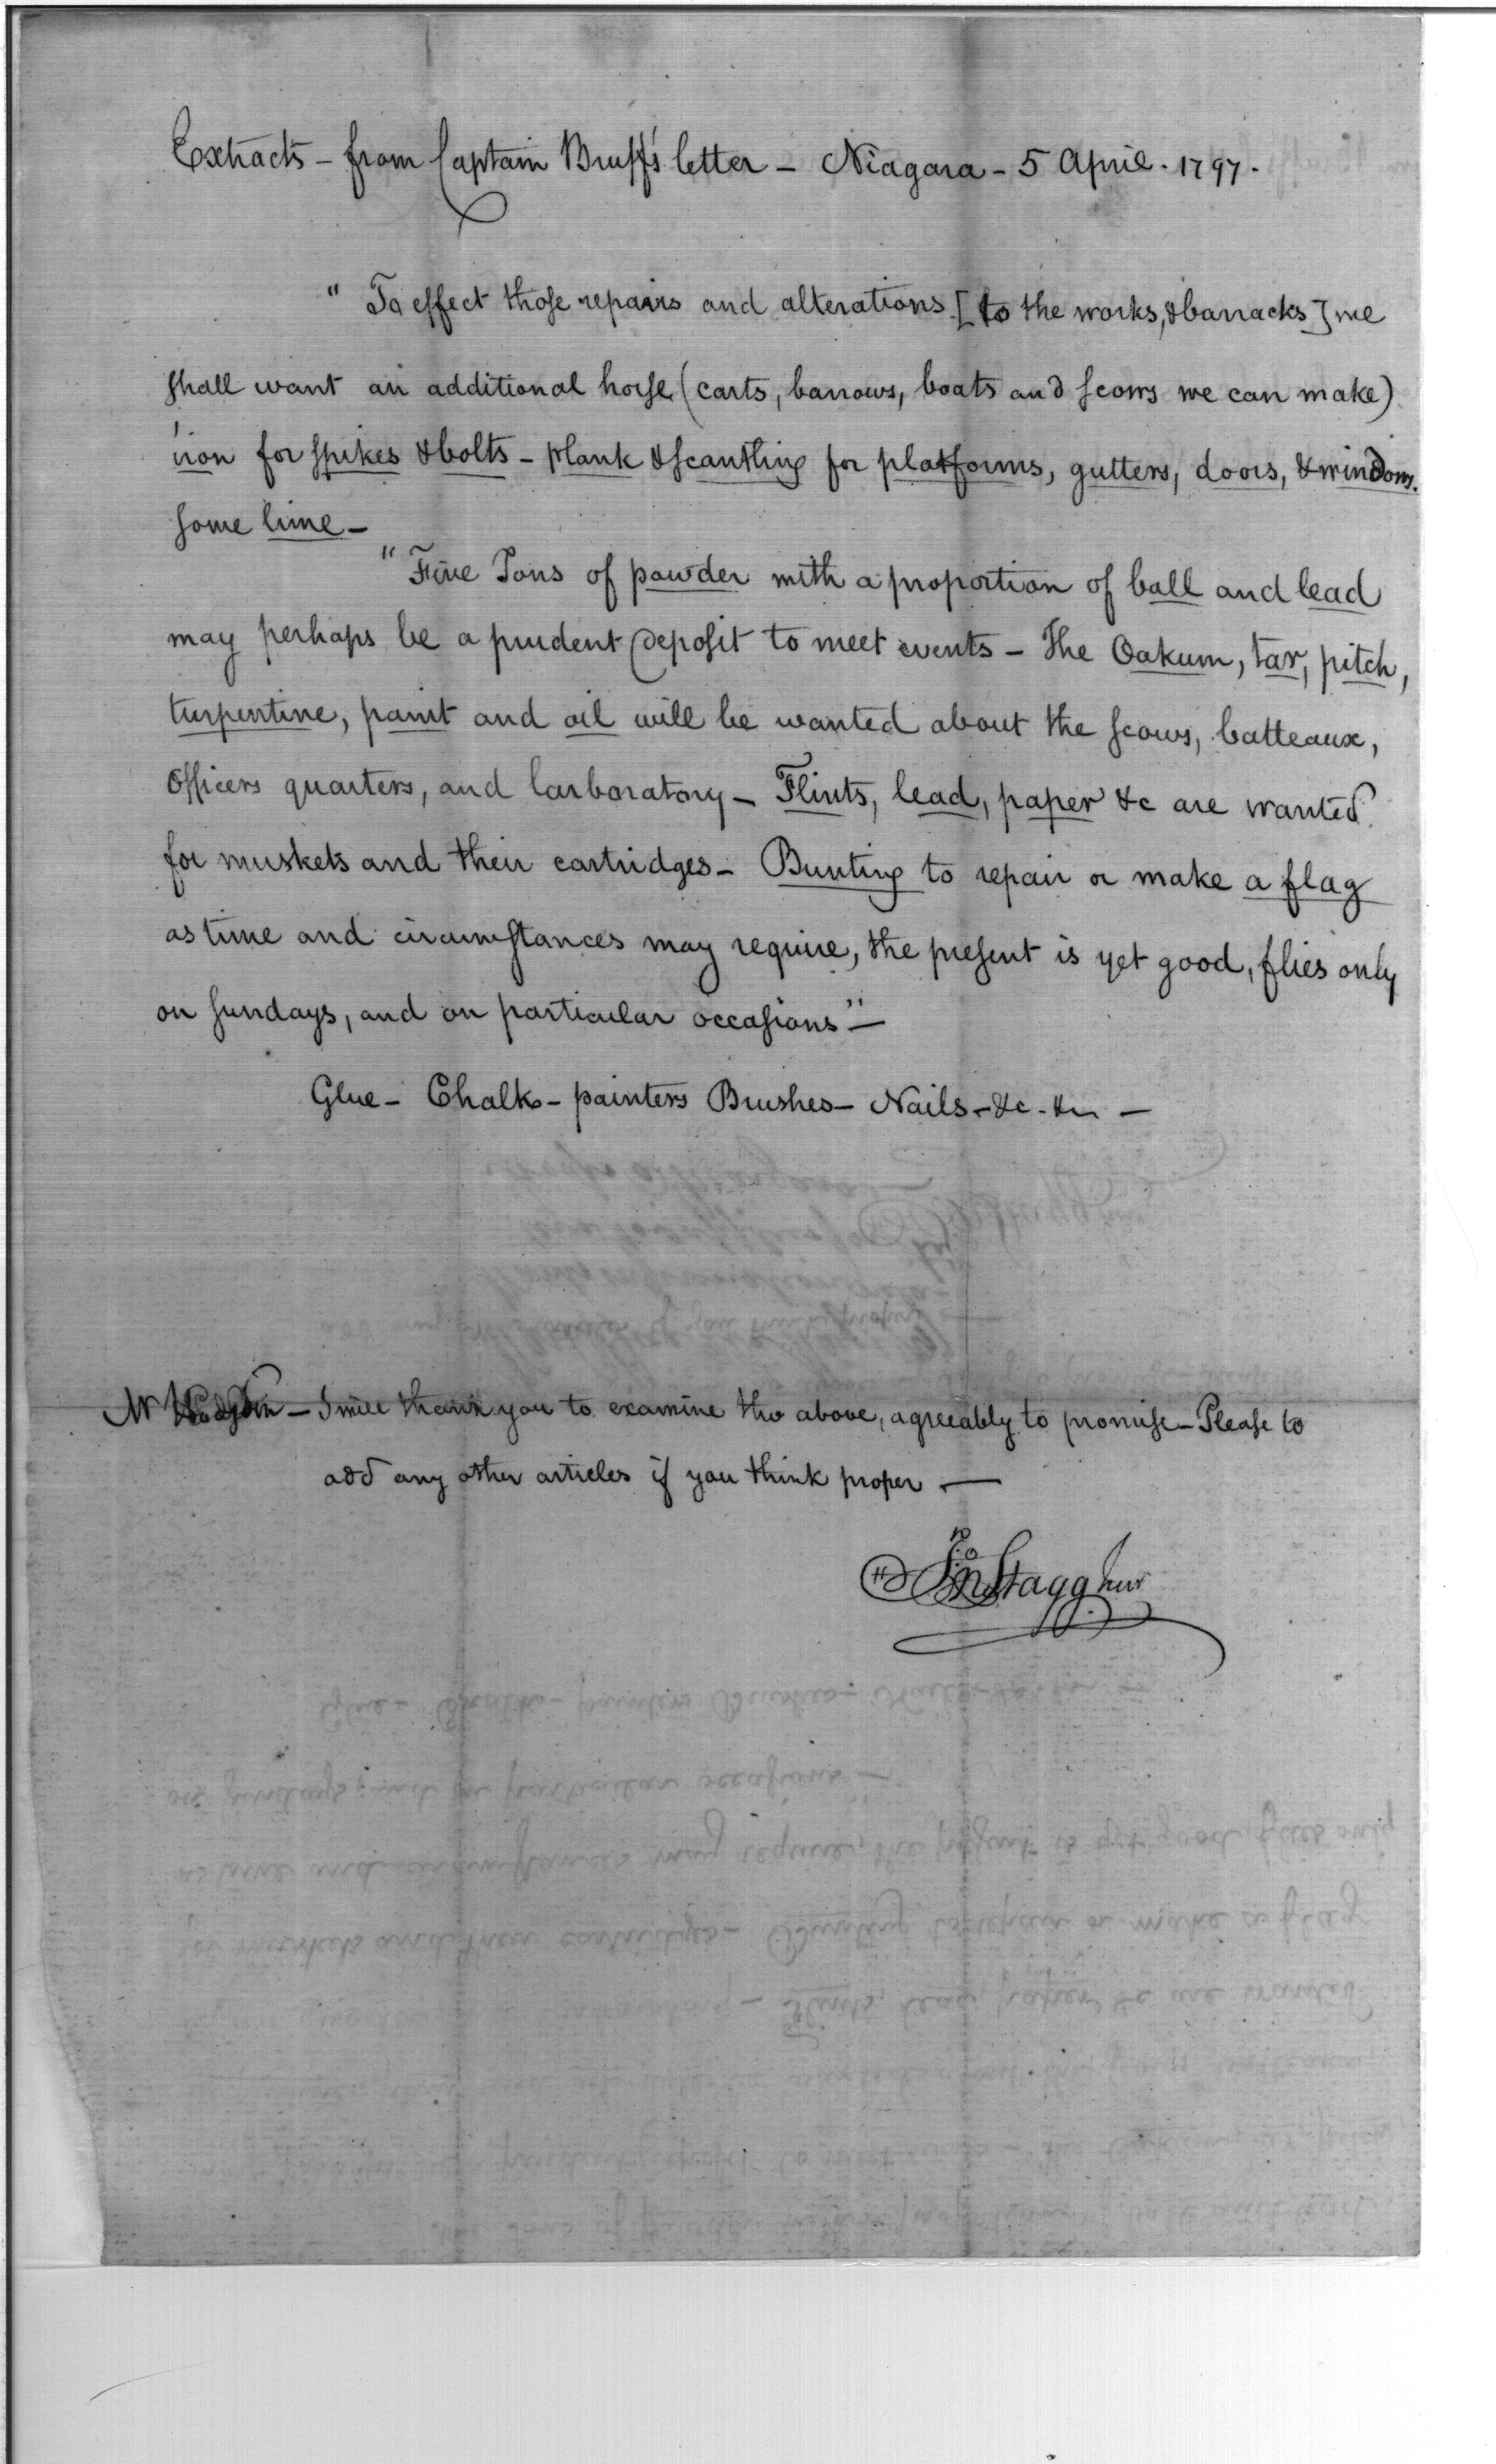 Extracts - from Captain Bruff's letter - Niagara - 5 April. 1797.
" To effect those repairs and alterations [to the works, & barracks] we
shall want an additional horse (carts, barrows, boats and scows we can make)
iron for spikes & bolts - plank & scantling for platforms, gutters, doors, & windows.
some lime -
" Five Tons of powder with a proportion of ball and lead
may perhaps be a prudent deposit to meet events - The Oakum, tar, pitch,
turpentine, paint and oil will be wanted about the scows, batteaux,
Officers quarters, and larboratory - Flints, lead, paper &c are wanted
for muskets and their cartridges - Bunting to repair or make a flag
as time and circumstances may require, the present is yet good, flies only
on sundays, and on particular occasions" -
Glue - Chalk - painters Brushes - Nails - &c - &c -
Mr Hodgdon - I will thank you to examine the above, agreeably to promise - Please to
add any other articles if you think proper -
Jno Stagg Junr